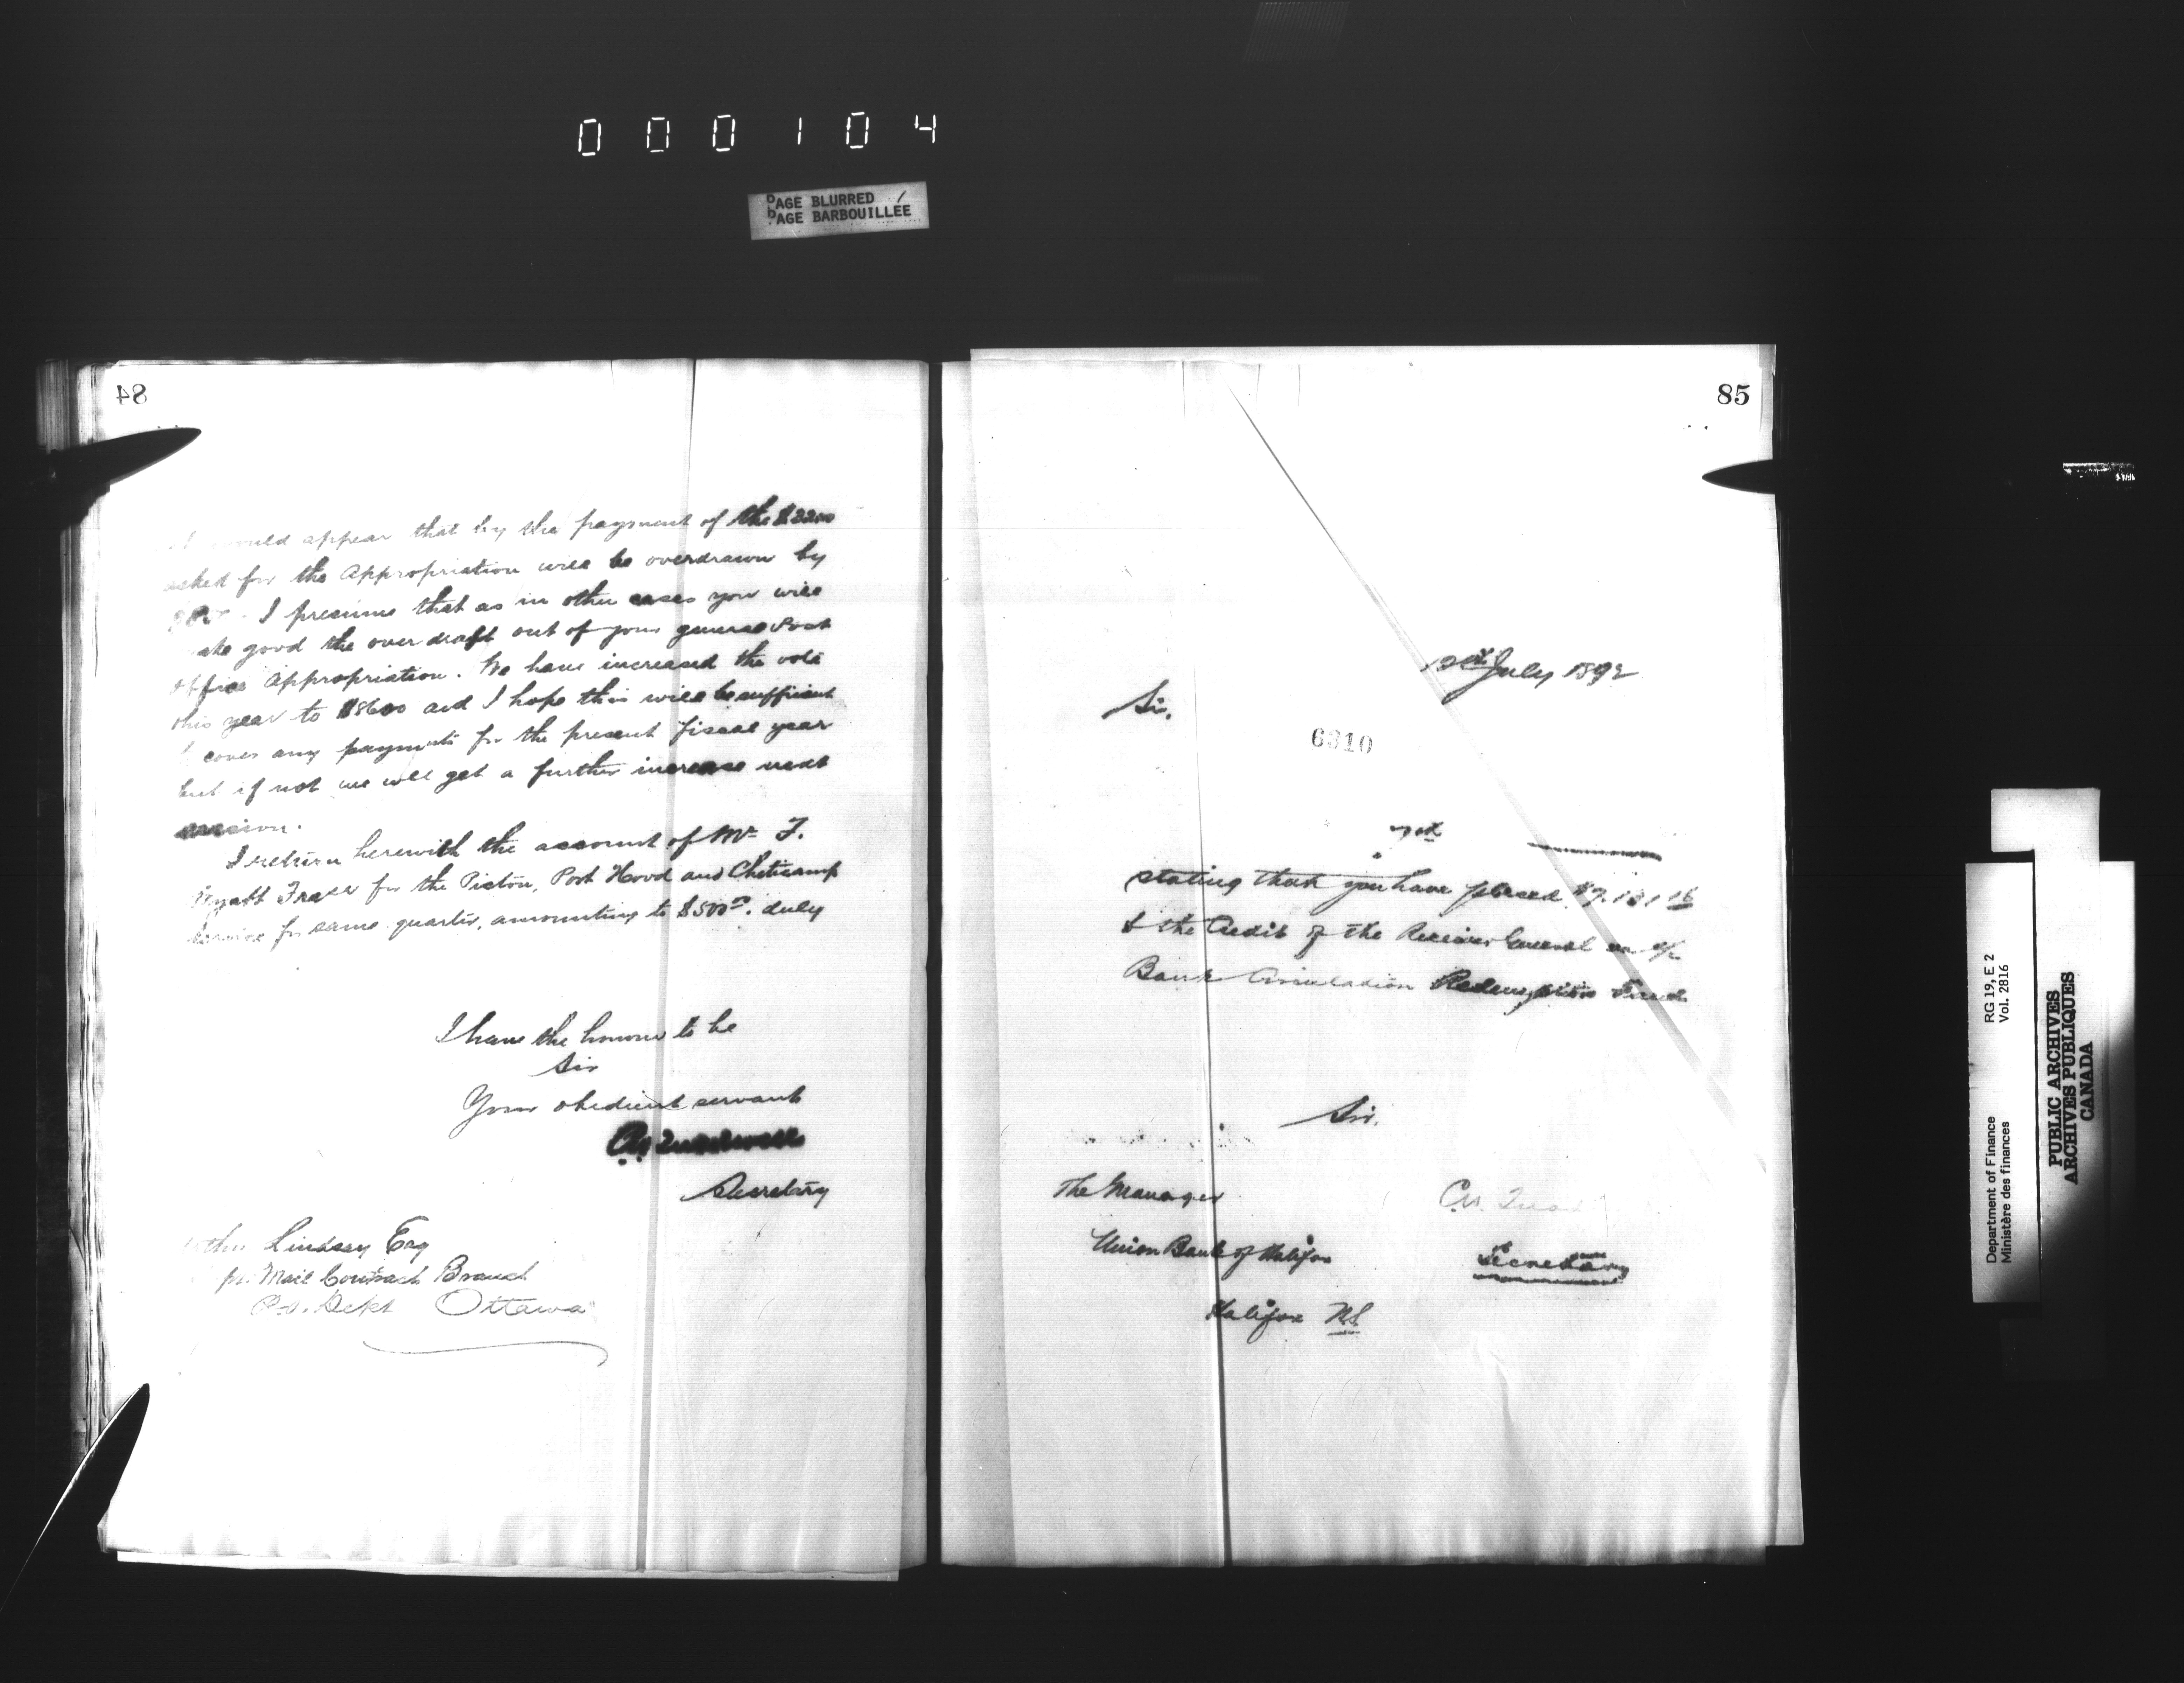 000104
PAGE BLURRED
PAGE BARBOUILLÉE
84
would appear that by the payment of the $2200
asked for the Appropriation will be overdrawn by
I presume that as in other cases you will
good the over draft out of your general Post
Office Appropriation. We have increased the vote
this year to $8600 and I hope this will be sufficient
cover any payments for the present fiscal year
but if not we will get a further increase next
session.
I return herewith the account of Mr J.
Fraser for the Pictou, Port Hood and Cheticamp
Service for same quarter, amounting to $500. duly
I have the honour to be
Sir
Your obedient servant
Secretary
Lindsay Esq
for Mail Contract Branch
P.O. Dept Ottawa
85
12th July 1892
Sir,
6310
7th
stating that you have placed $7.131 16
to the Credit of the Receiver General on a/c
Bank Circulation Redemption Fund
Sir,
The Manager
Union Bank of Halifax
Secretary
Halifax N.S
Department of Finance RG 19, E 2
Ministère des finances Vol. 2816
PUBLIC ARCHIVES
ARCHIVES PUBLIQUES
CANADA